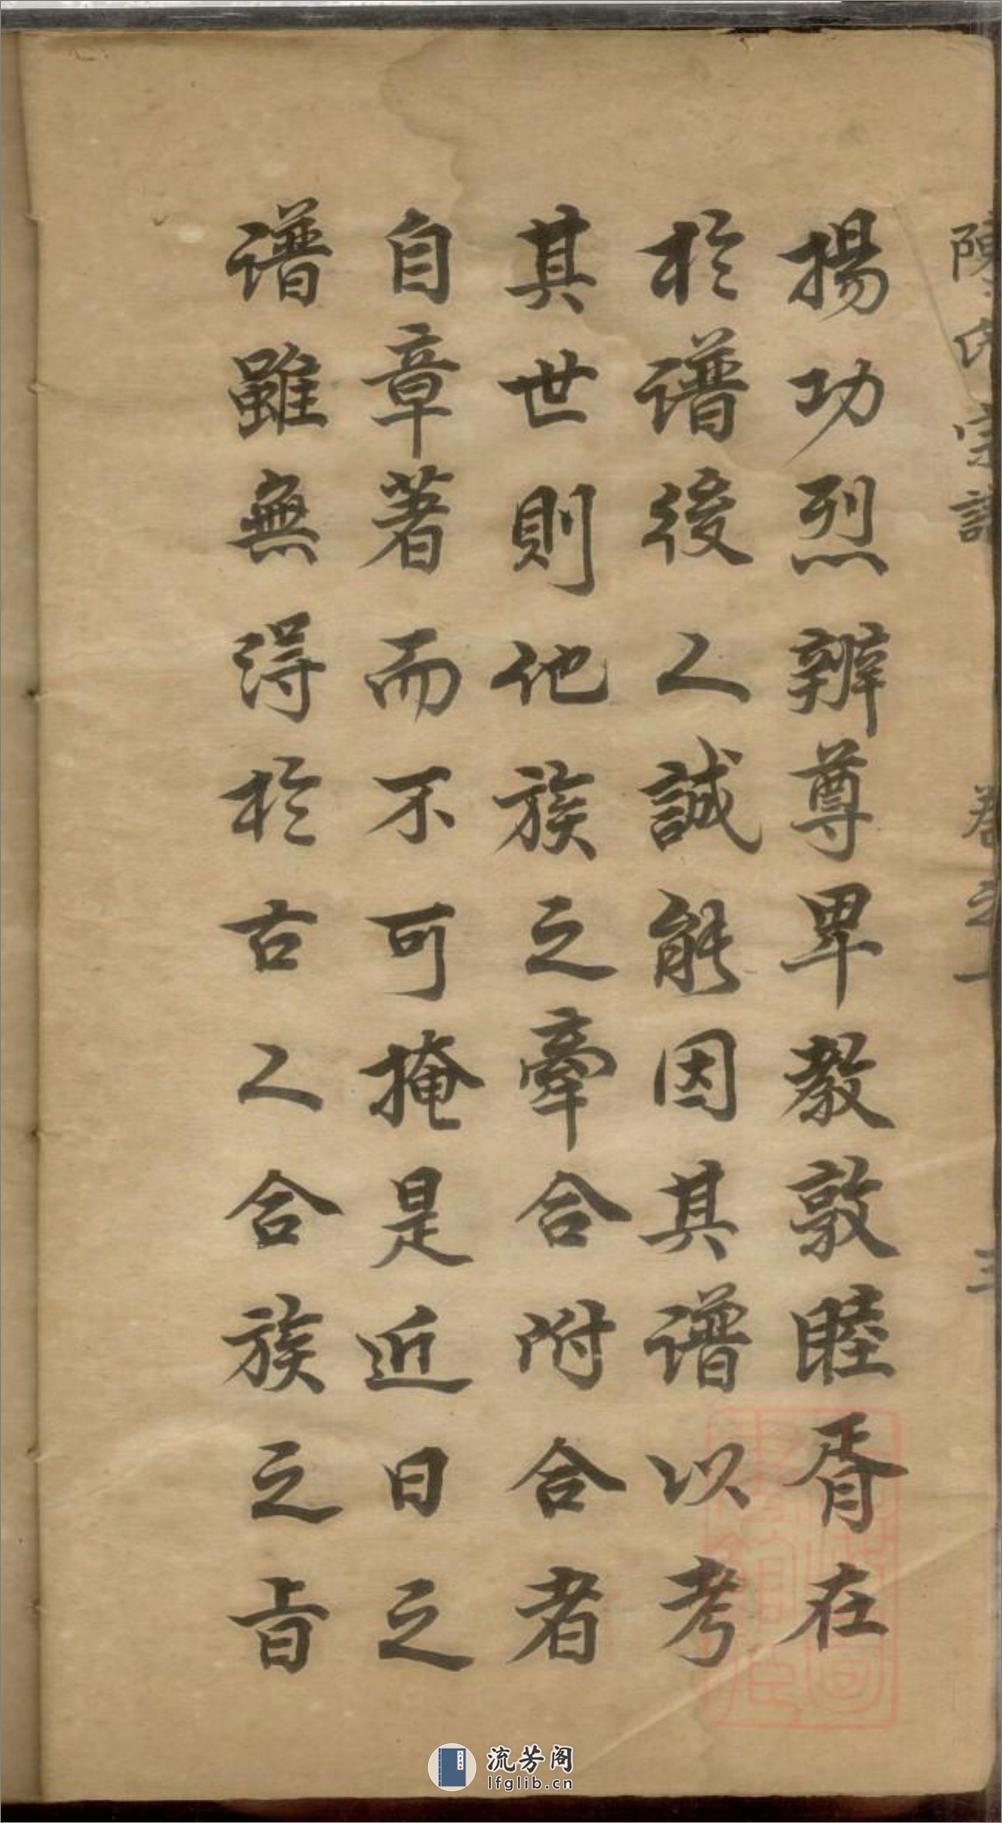 陳氏宗譜 卷之一 三
揚功烈辨尊卑教敦睦胥在
於譜後人誠能因其譜以考
其世則他族之牽合附合者
自章著而不可掩是近日之
譜雖無得於古人合族之旨
流芳阁
lfglib.cn